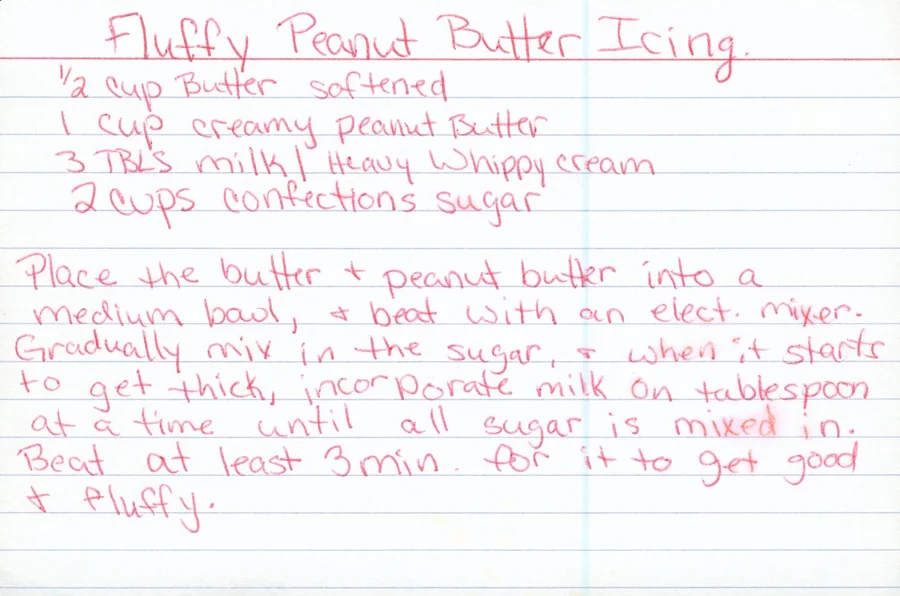 Fluffy Peanut Butter Icing.
1/2 cup Butter softened
1 cup creamy peanut Butter
3 TBLS milk / Heavy Whippy cream
2 cups confections sugar
Place the butter + peanut butter into a
medium bowl, + beat with an elect. mixer.
Gradually mix in the sugar, + when it starts
to get thick, incorporate milk on tablespoon
at a time until all sugar is mixed in.
Beat at least 3 min. for it to get good
+ fluffy.